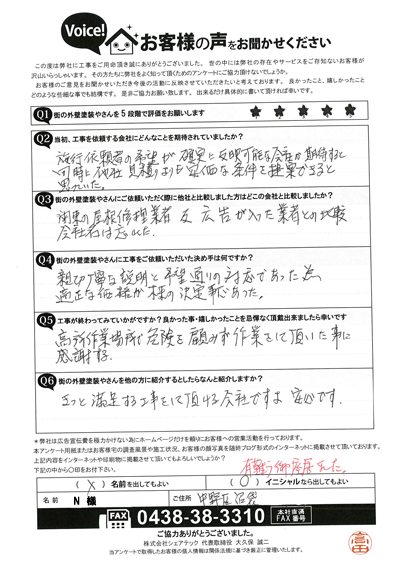 Voice!
お客様の声をお聞かせください
この度は弊社に工事をご用命頂き誠にありがとうございました。世の中には弊社の存在やサービスをご存知ないお客様が
沢山いらっしゃいます。その方たちに弊社をよく知って頂くためのアンケートにご協力頂けないでしょうか。
お客様のご意見をお聞かせいただき今後の活動に反映させていただきたいと考えております。良かったこと、嬉しかったこと
どのような些細な事でも結構です。是非ご協力お願い致します。出来るだけ具体的に書いて頂ければ幸いです。
Q1 街の外壁塗装やさんを5段階で評価をお願いします ★ ★ ★ ★ ★
Q2 当初、工事を依頼する会社にどんなことを期待されていましたか?
施行依頼者の希望が確実に反映可能な会社か期待すると
同時に他社見積りよりも安価な条件を提案できると
思っていた。
Q3 街の外壁塗装やさんにご依頼いただく際に他社と比較しました方はどこの会社と比較しましたか?
関東の屋根修理業者及広告が入った業者との比較
会社名は忘れた。
Q4 街の外壁塗装やさんに工事をご依頼いただいた決め手は何ですか?
親切丁寧な説明と希望通りの対応であった為
適正な価格が株の決定事であった。
Q5 工事が終わってみていかがですか?良かった事・嬉しかったことを忌憚なく頂戴出来ましたら幸いです
高所作業場所に危険を顧みず作業をして頂いた事に
感謝する。
Q6 街の外壁塗装やさんを他の方に紹介するとしたらなんと紹介しますか?
きっと満足する工事をして頂ける会社ですよ 安心です。
*弊社は広告宣伝費を極力かけない為にホームページだけを頼りにお客様への営業活動を行っております。
本アンケート用紙またはお客様宅の調査風景や施工状況、お客様の顔写真を随時ブログ形式のインターネットに掲載させて頂いております。
上記内容をインターネットや印刷物に掲載させて頂いてもよろしいでしょうか?
下記の中から〇印をお付下さい。
有難う御座居ました。
( X ) 名前を出してもよい ( O ) イニシャルなら出してもよい
名前 N 様 ご住所 中野区沼袋
FAX 0438-38-3310 本社直通 FAX番号
ご協力ありがとうございました。
株式会社シェアテック 代表取締役 大久保 誠二
当アンケートで取得したお客様の個人情報は関係法規に基づき厳正に管理いたします。